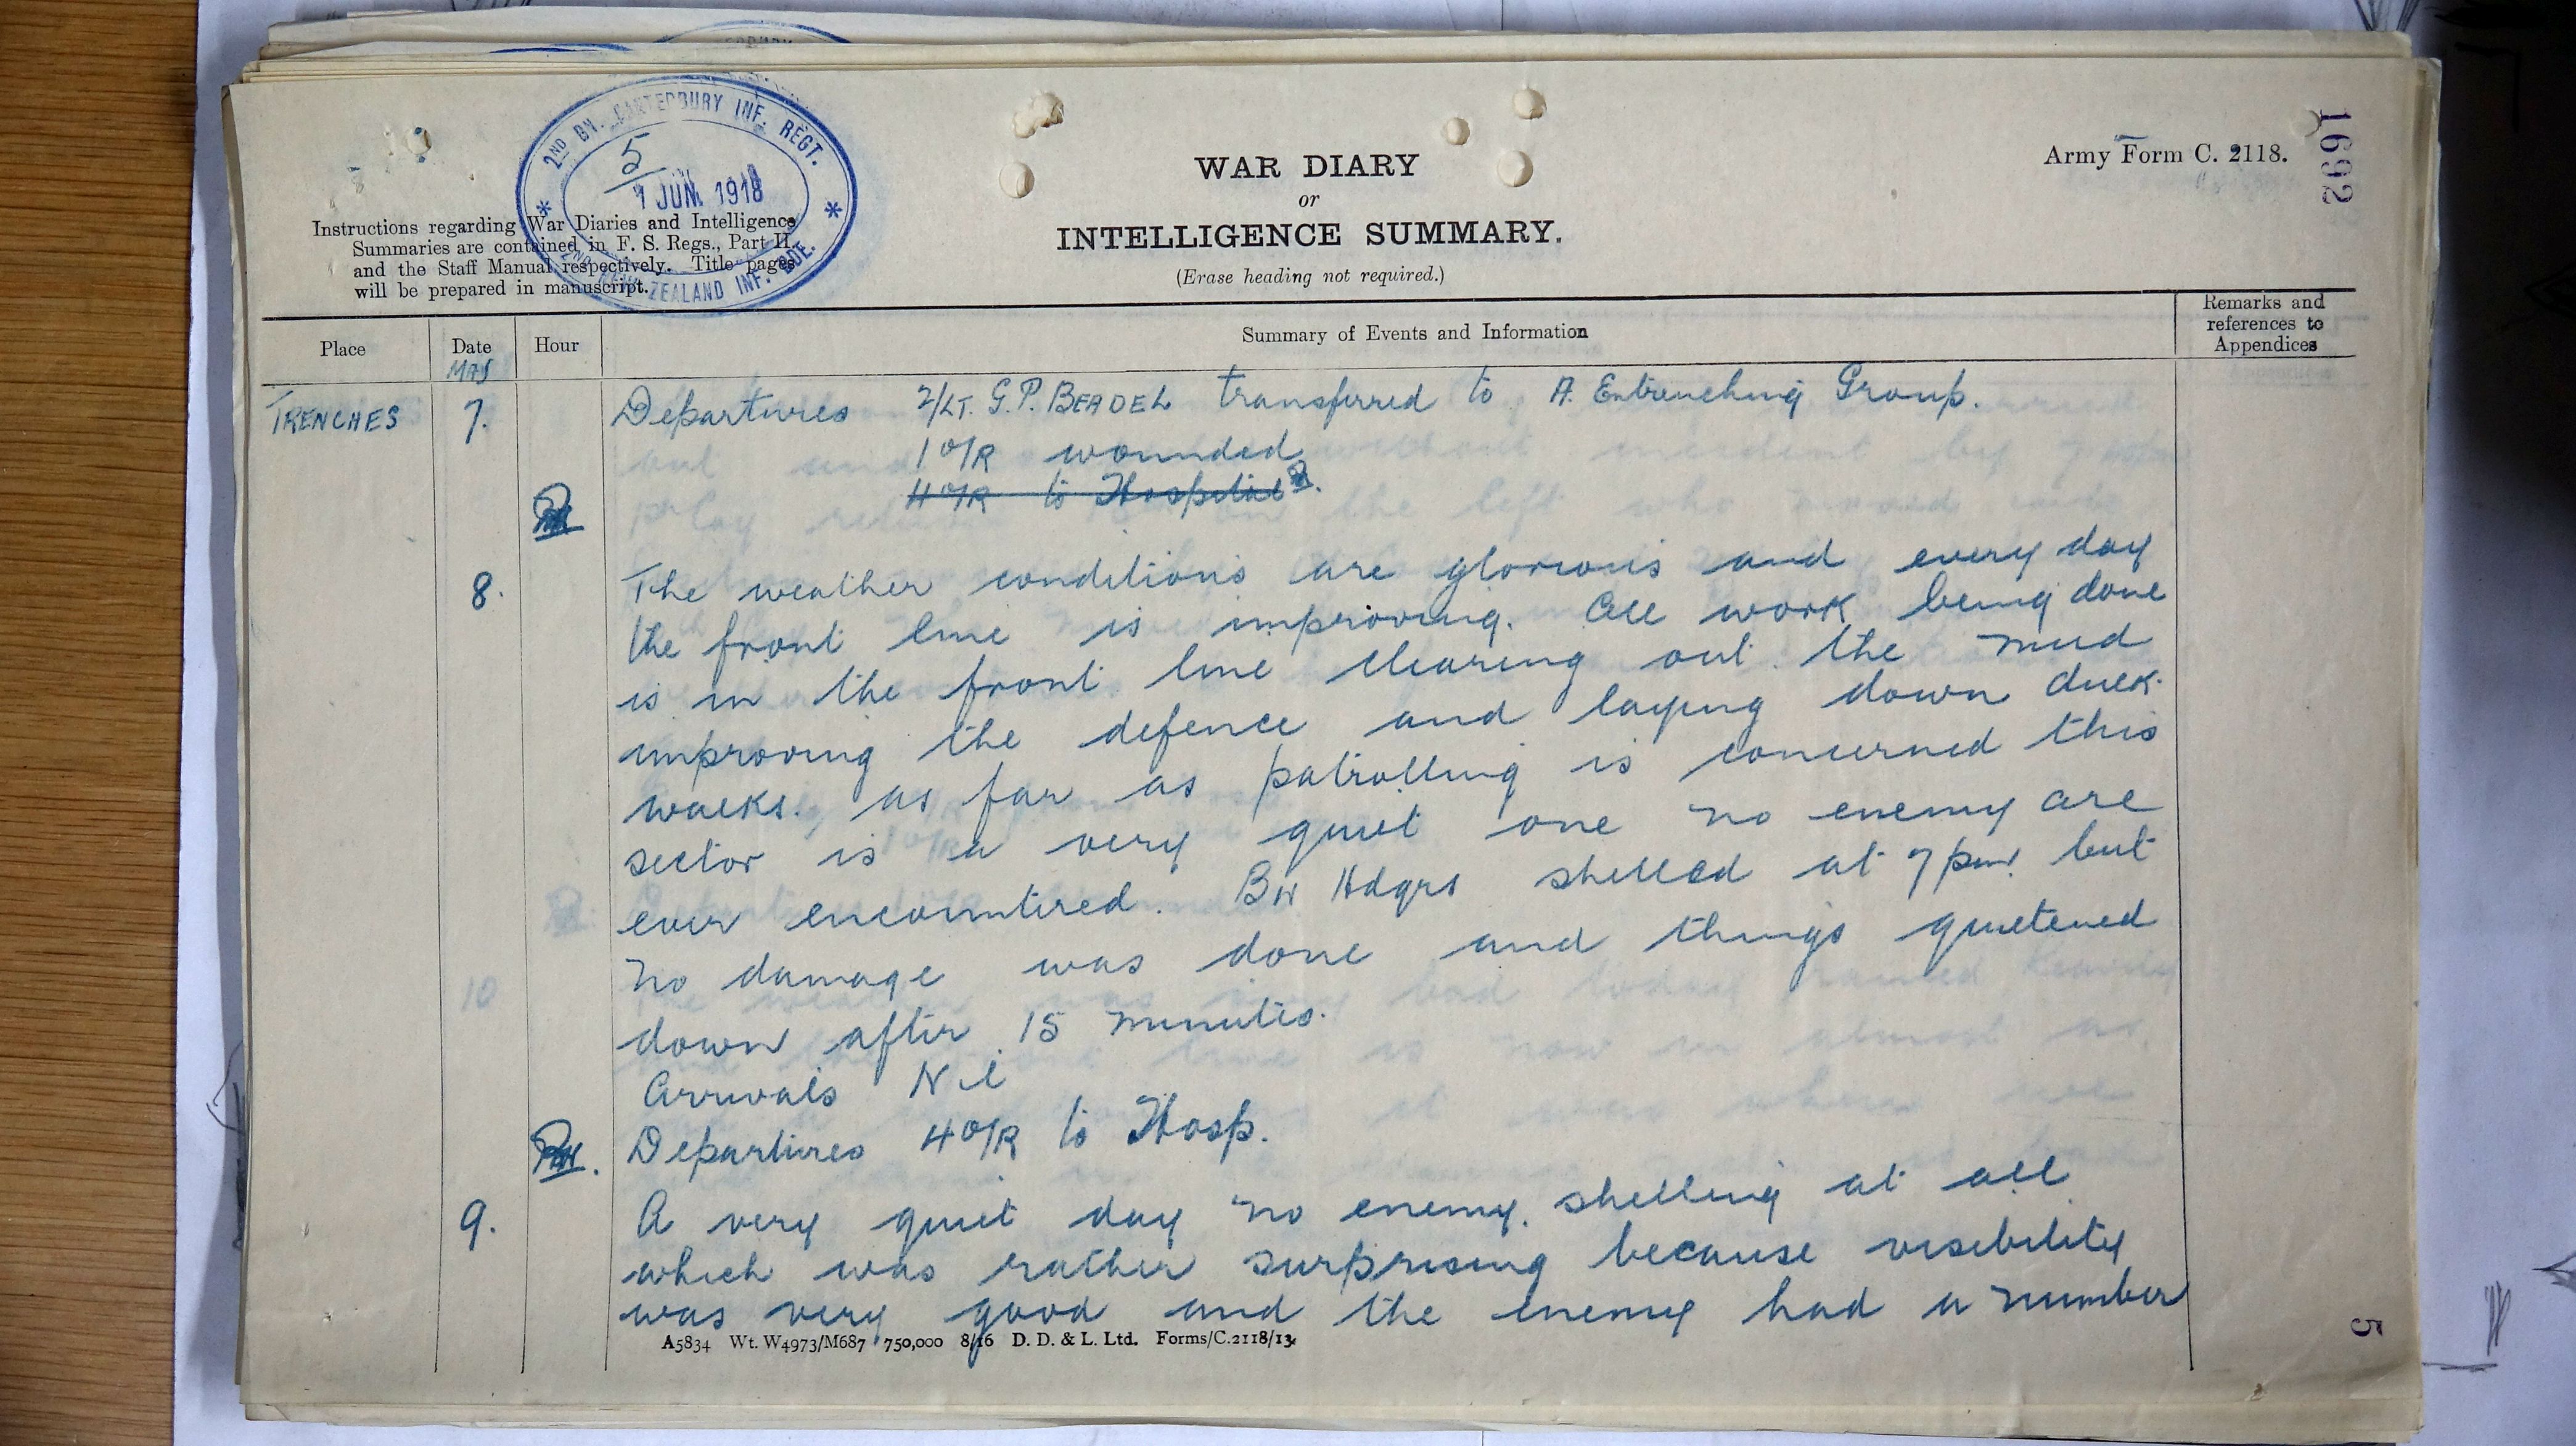 2ND BN. CANTERBURY INF. REGT.
5
1 JUN. 1918
2ND NEW ZEALAND INF. BDE.
1692
Army Form C. 2118.
WAR DIARY
or
INTELLIGENCE SUMMARY.
(Erase heading not required.)
Instructions regarding War Diaries and Intelligence
Summaries are contained in F. S. Regs., Part II.
and the Staff Manual respectively. Title pages
will be prepared in manuscript.
Place Date Hour Summary of Events and Information Remarks and
references to
Appendices
MAY
TRENCHES 7. Departures 2/LT. G.P. BEADEL transferred to A. Entrenching Group.
1 O/R wounded
4 O/R to Hospital.
8. The weather conditions are glorious and every day
the front line is improving. All work being done
is in the front line clearing out the mud
improving the defence and laying down duck
walks. as far as patrolling is concerned this
sector is a very quiet one no enemy are
ever encountered. BN Hdqrs shelled at 7 pm. but
no damage was done and things quietened
down after 15 minutes.
Arrivals Nil
Departures 4 O/R to Hosp.
9. A very quiet day no enemy shelling at all
which was rather surprising because visibility
was very good and the enemy had a number
A5834 Wt. W4973/M687 750,000 8/16 D. D. & L. Ltd. Forms/C.2118/13.
5